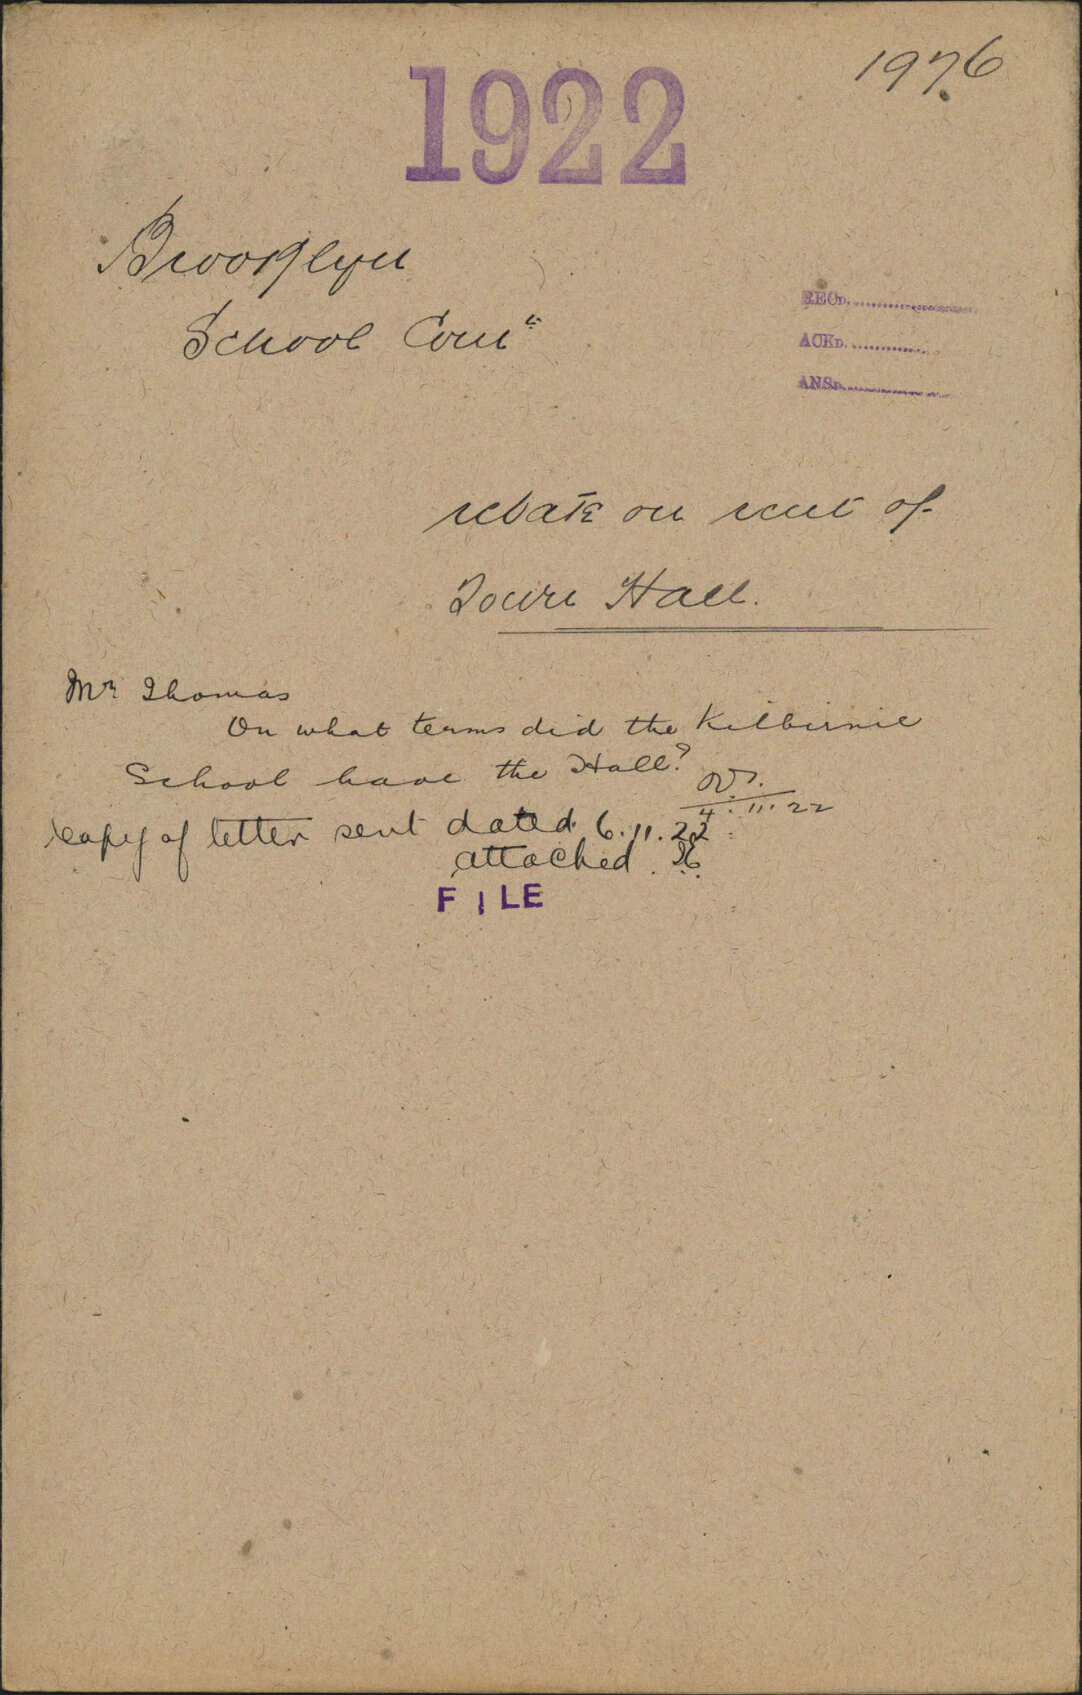 1976
1922
Brooklyn
School Com"ee
RECD.
ACKD.
ANSD.
rebate on rent of
Town Hall.
Mr Thomas
On what terms did the Kilbirnie
School have the Hall?
4.11.22
copy of letter sent dated 6.11.22
attached
FILE